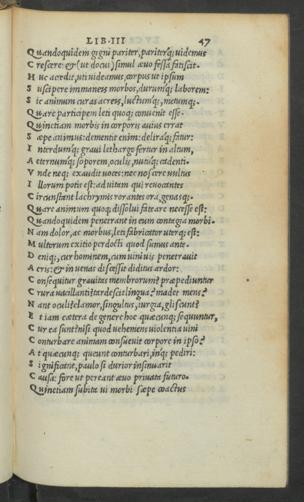 LIB·III 47
Quandoquidem gigni pariter, pariterq; uidemus
Crescere: & (ut docui) simul æuo fessa fatiscit.
Huc accedit, uti uideamus, corpus ut ipsum
Suscipere immaneis morbos, durumq; laborem:
Sic animum curas acreis, luctumq;, metumq;.
Quare participem leti quoq; conuenit esse.
Quinetiam morbis in corporis auius errat
Sæpe animus: dementit enim: deliraq; fatur:
Interdumq; graui lethargo fertur in altum,
Aeternumq; soporem, oculis, nutuq; cadenti.
Vnde neq; exaudit uoces: nec noscere uultus
Illorum potis est: ad uitam qui reuocantes
Circunstant lachrymis rorantes ora, genasq;.
Quare animum quoq; dissolui fateare necesse est:
Quandoquidem penetrant in eum contagia morbi.
Nam dolor, ac morbus, leti fabricator uterq; est:
Multorum exitio perdocti quod sumus ante.
Deniq; cur hominem, cum uini uis penetrauit
Acris: & in uenas discessit diditus ardor:
Consequitur grauitas membrorum? præpediuntur
Crura uacillanti? tardescit lingua? madet mens?
Nant oculi? clamor, singultus, iurgia, gliscunt?
Et iam cætera de genere hoc quæcunq; sequuntur,
Cur ea sunt? nisi quod uehemens uiolentia uini
Conturbare animam consueuit corpore in ipso?
At quæcunq; queunt conturbari, inq; pediri:
Significant, paulo si durior insinuarit
Causa: fore ut pereant æuo priuata futuro.
Quinetiam subita ui morbi sæpe coactus